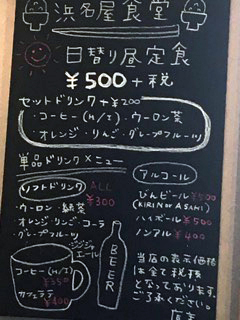 浜名屋食堂
日替り昼定食
¥500+税
セットドリンク+¥200
・コーヒー(H/I)・ウーロン茶
・オレンジ・りんご・グレープフルーツ
単品ドリンクメニュー
ソフトドリンク ALL ¥300
・ウーロン・緑茶
・オレンジ・リンゴ・コーラ
・グレープフルーツ
ジンジャエール
コーヒー(H/I)
¥350
カフェラテ
¥400
BEER
アルコール
びんビール ¥500
(KIRIN or ASAHI)
ハイボール ¥500
ノンアル ¥400
当店の表示価格
は全て税抜
となっております。
ご了承ください。
店主